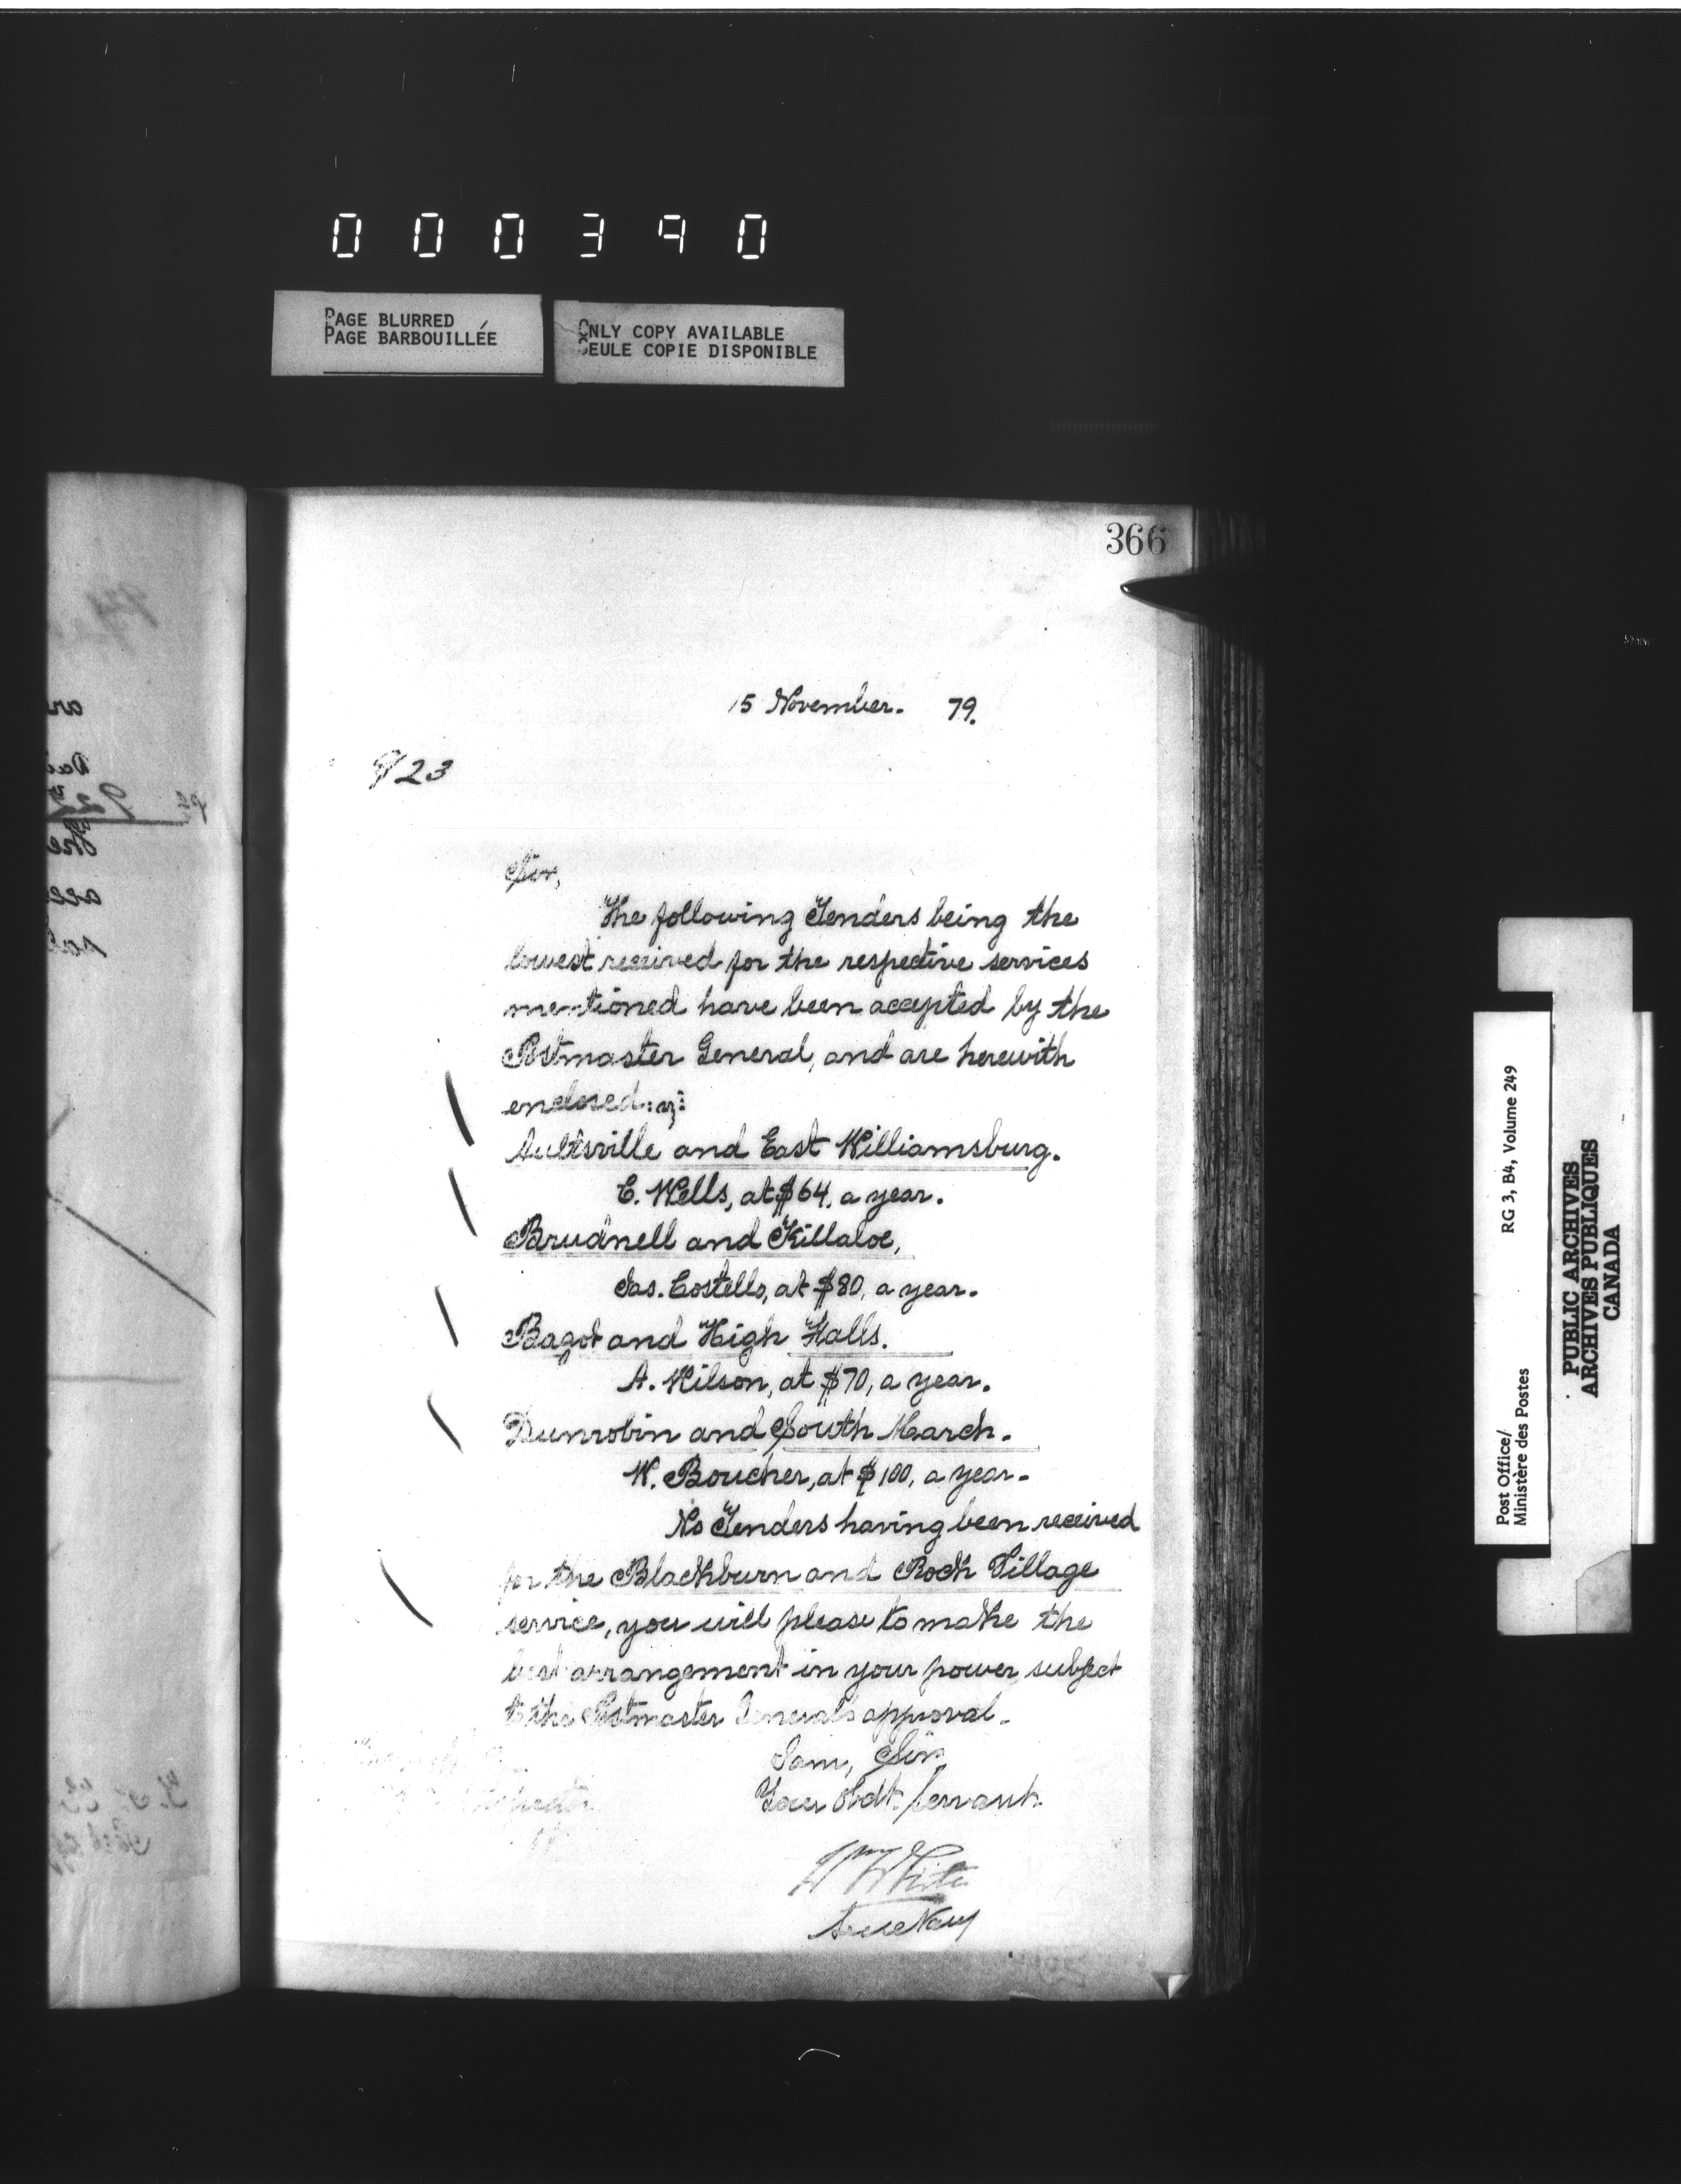 000390
PAGE BLURRED
PAGE BARBOUILLÉE
ONLY COPY AVAILABLE
SEULE COPIE DISPONIBLE
366
15 November. 79.
923
Sir,
The following Tenders being the
lowest received for the respective services
mentioned have been accepted by the
Postmaster General, and are herewith
enclosed:
Aultsville and East Williamsburg.
C. Wells, at $64, a year.
Brudnell and Killaloe,
Jas. Costello, at $80, a year.
Bagot and High Falls.
A. Wilson, at $70, a year.
Dunrobin and South March.
W. Boucher, at $100, a year.
No Tenders having been received
for the Blackburn and Rock Village
service, you will please to make the
best arrangement in your power subject
to the Postmaster General's approval.
I am, Sir,
Your Obdt. Servant.
Wm White
Secretary
Post Office/
Ministère des Postes
RG 3, B4, Volume 249
PUBLIC ARCHIVES
ARCHIVES PUBLIQUES
CANADA